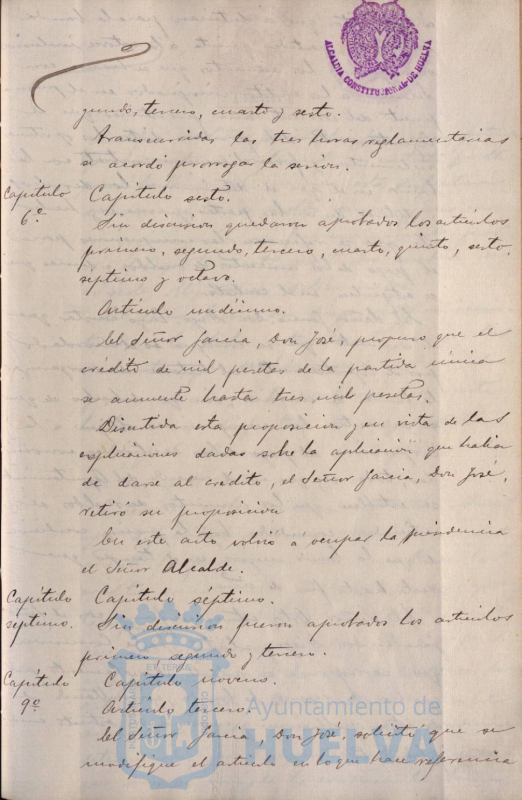 ALCALDIA CONSTITUCIONAL DE HUELVA
gundo, tercero, cuarto y sexto.
Transcurridas las tres horas reglamentarias
se acordó prorrogar la sesión.
Capítulo 6º.
Capítulo sexto.
Sin discusion quedaron aprobados los artículos
primero, segundo, tercero, cuarto, quinto, sexto,
séptimo y octavo.
Artículo undécimo.
El Señor García, Don José, propuso que el
crédito de mil pesetas de la partida única
se aumente hasta tres mil pesetas.
Discutida esta proposicion y en vista de las
explicaciones dadas sobre la aplicación que habia
de darse al crédito, el Señor García, Don José,
retiró su proposicion
En este acto volvió a ocupar la presidencia
el Señor Alcalde.
Capítulo séptimo.
Capítulo séptimo.
Sin discusion fueron aprobados los artículos
primero, segundo y tercero.
Capítulo 9º
Capítulo noveno.
Artículo tercero.
El Señor García, Don José, solicitó que se
modifique el artículo en lo que hace referencia
Ayuntamiento de
HUELVA